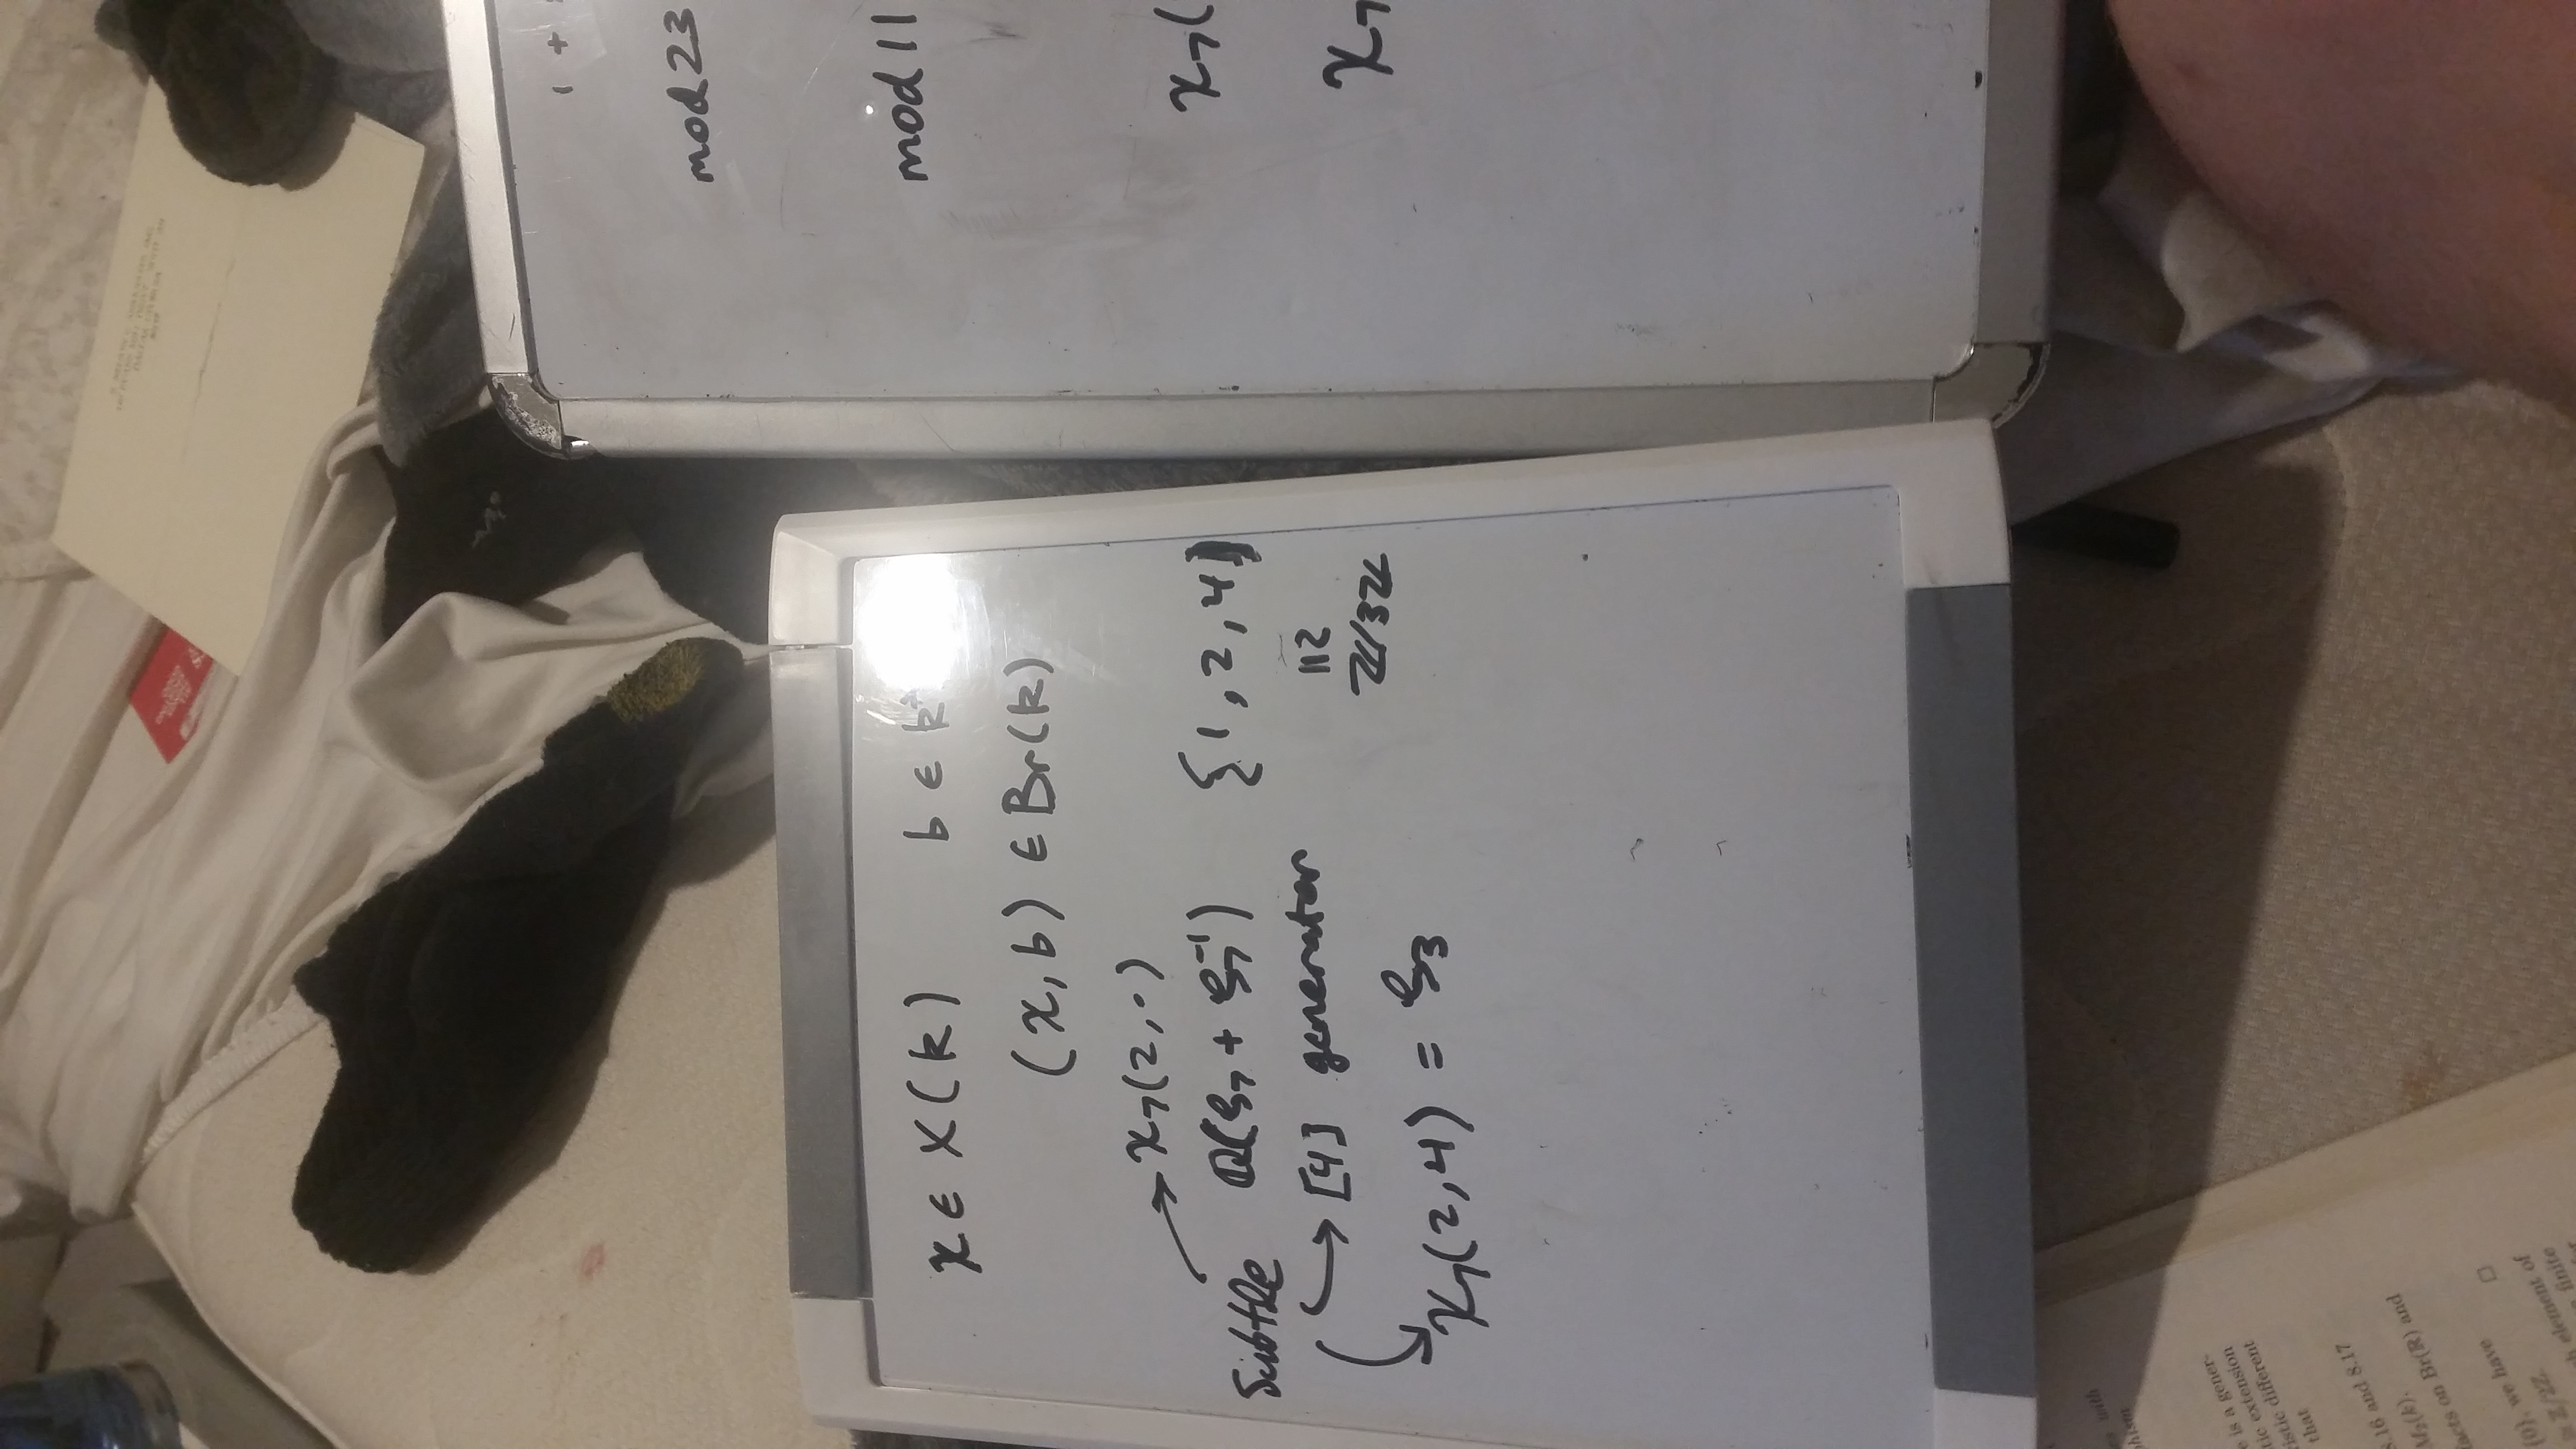 χ ∈ X(k)    b ∈ k*
(χ, b) ∈ Br(k)
χ₇(2, ·)
Subtle
ℚ(ζ₇ + ζ₇⁻¹)    {1, 2, 4}
[4] generator
≅
ℤ/3ℤ
χ₇(2,4) = ζ₃
1 +
mod 23
mod 11
χ₇(
χ₇
with
phism
e is a gener-
tic extension
ristic different
that
8.16 and 8.17
M₂(k).
facts on Br(ℝ) and
{0}, we have
≅ ℤ/2ℤ. □
element of
finite